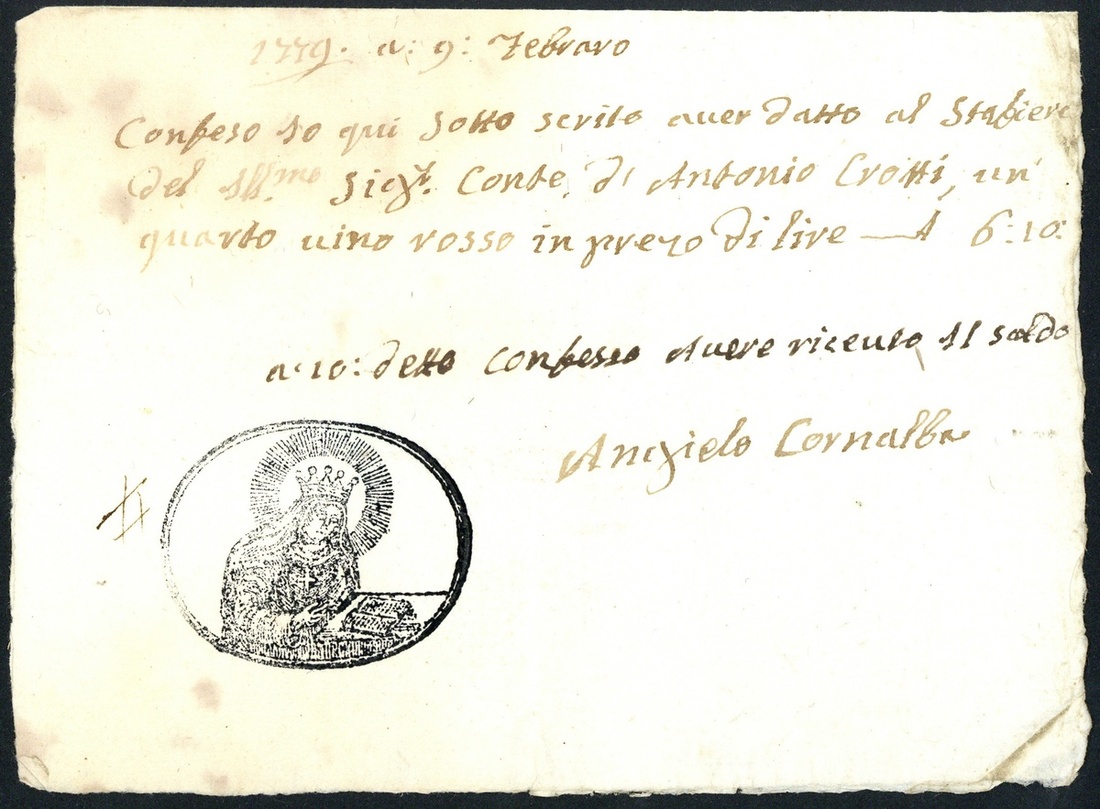 1779. a: 9: Febraro
Confeso io qui sotto scrito aver datto al Stafiere
del Ill.mo Sig.r Conte, d' Antonio Crotti, un
quarto vino rosso in prezo di lire — £ 6:10:
a: 10: detto Confesso Avere riceuto Il saldo
Angielo Cornalba